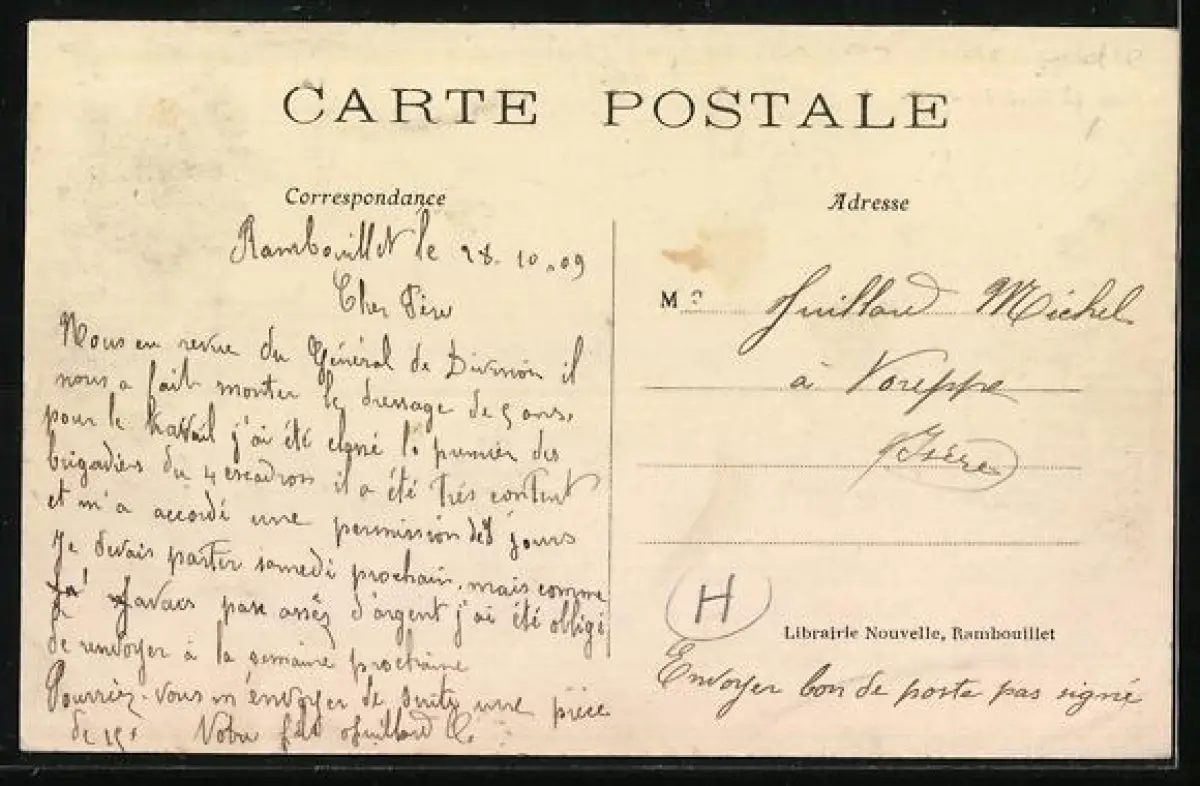 CARTE POSTALE
Correspondance
Rambouillet le 28. 10. 09
Cher Père
Nous en revue du Général de Division il
nous a fait monter le dressage de 5 ans.
pour le travail j'ai été classé le premier des
brigadiers du 4 escadron il a été très content
et m'a accordé une permission de 8 jours
Je devais partir samedi prochain. mais comme
avais pas assez d'argent j'ai été obligé
de renvoyer à la semaine prochaine
Pourriez-vous m'envoyer de suite une pièce
de 15f Votre fils Juillard
Adresse
M r Juillard Michel
à Voreppe
(Isère)
H
Librairie Nouvelle, Rambouillet
Envoyer bon de poste pas signé